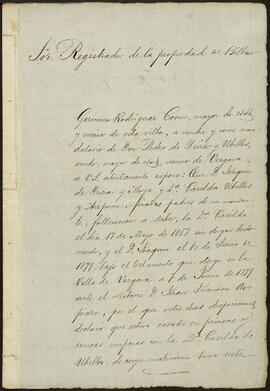 Sór. Registrador de la propiedad de Bilbao
Germán Rodríguez Cosme, mayor de edad
y vecino de esta villa, a nombre y como man-
datario de Don Pedro de Yriza y Ubillos,
viudo, mayor de edad, vecino de Vergara,
a V.S. atentamente espone: Que D. Joaquin
de Yriza y Moya y Dª Casilda Ubillos
y finados padres de su manda-
te, fallecieron a saber, la Dª Casilda
el dia 17 de Mayo de 1857 sin otorgar testa-
mento, y el D. Joaquin el 10 de Junio de
1871, bajo el testamento que otorgó en la
Villa de Vergara a 7 de Junio de 1871
ante el Notario D. Juan Francisco
por el que entre otras disposiciones,
declaró que estuvo casado en primeras y
unicas nupcias con la Dª Casilda de
Ubillos, de cuyo matrimonio tuvo siete